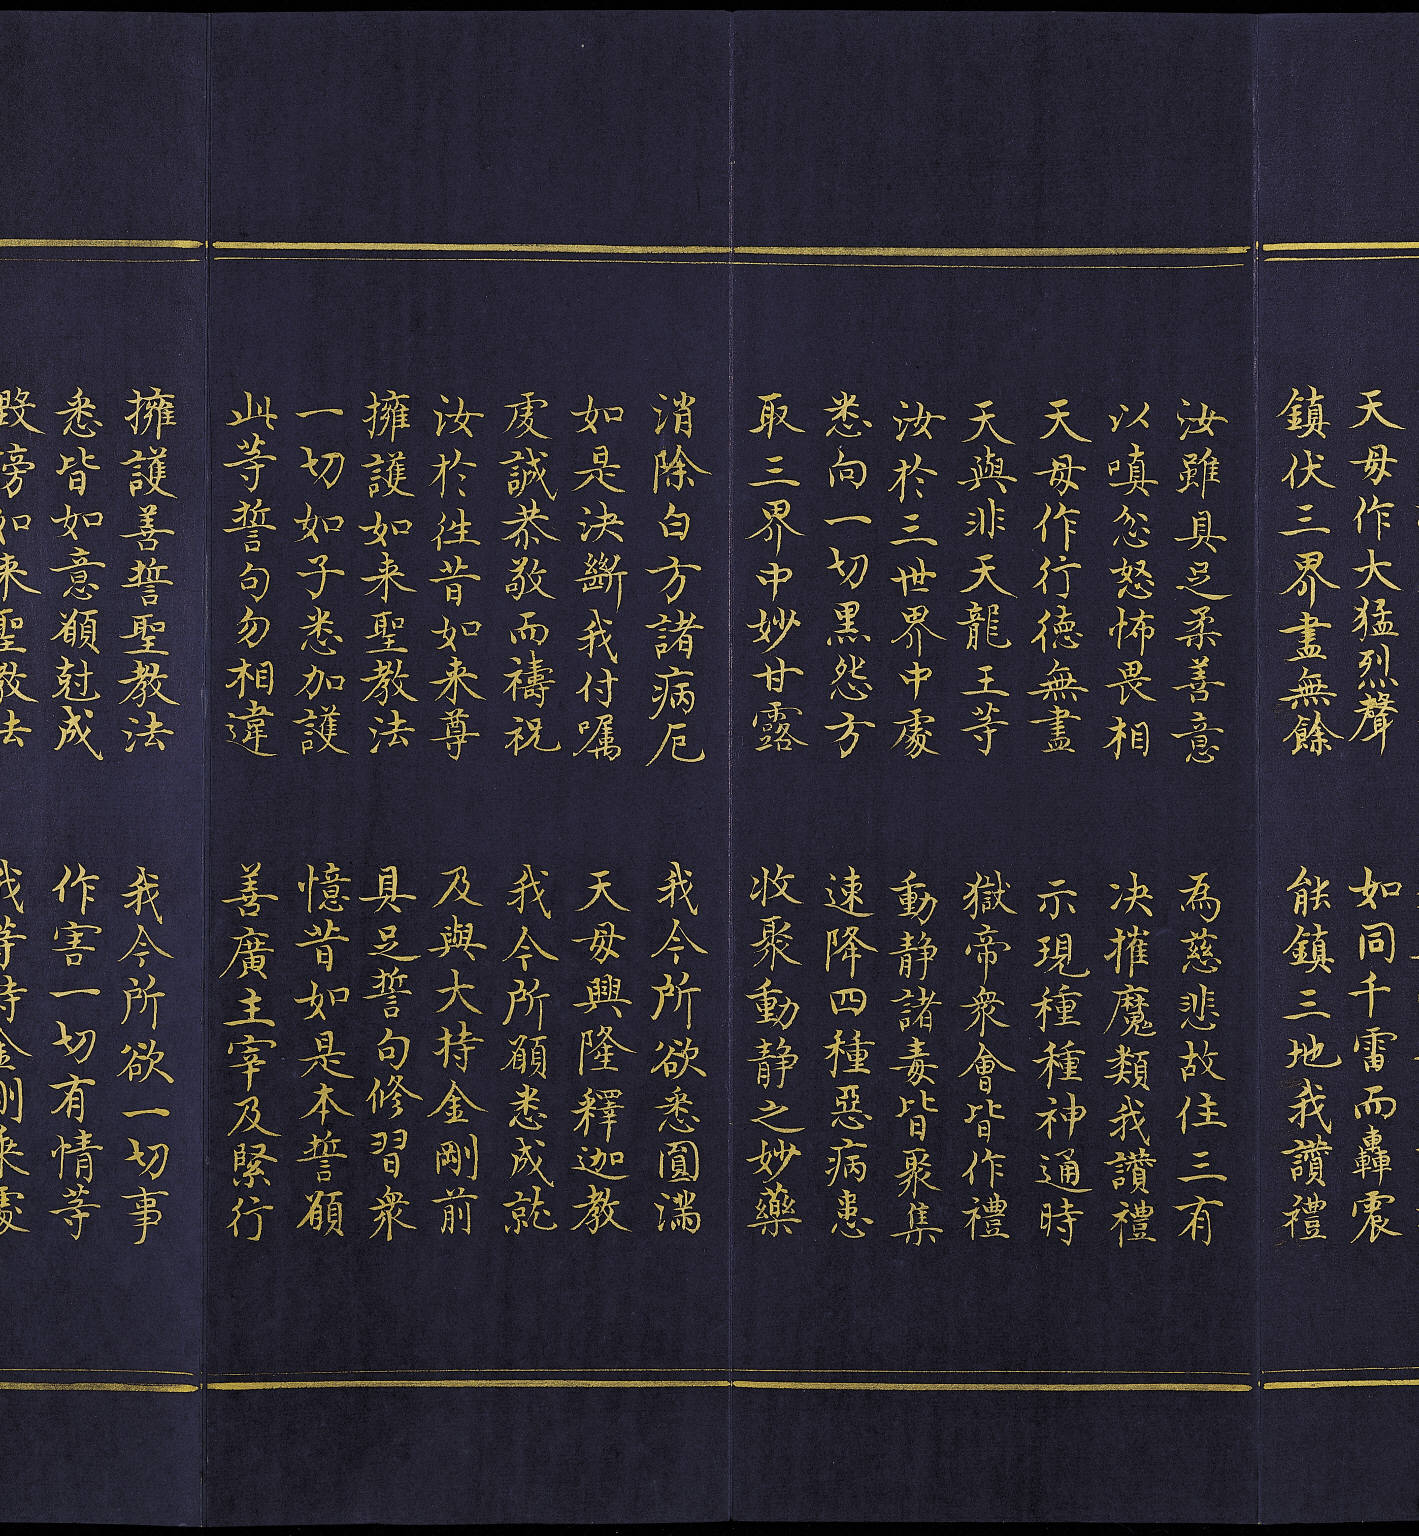 天毋作大猛烈聲 如同千雷而轟震
鎮伏三界盡無餘 能鎮三地我讚禮
汝雖具足柔善意 為慈悲故住三有
以嗔忿怒怖畏相 决摧魔類我讚禮
天毋作行德無盡 示現種種神通時
天與非天龍王等 獄帝衆會皆作禮
汝於三世界中處 動静諸毒皆聚集
悉向一切黑怨方 速降四種惡病患
取三界中妙甘露 收聚動静之妙藥
消除白方諸病厄 我今所欲悉圓滿
如是决斷我付嘱 天毋興隆釋迦教
虔誠恭敬而禱祝 我今所願悉成就
汝於徃昔如来尊 及與大持金剛前
擁護如来聖教法 具足誓句修習衆
一切如子悉加護 憶昔如是本誓願
此等誓句勿相違 善廣主宰及緊行
擁護善誓聖教法 我今所欲一切事
悉皆如意願尅成 作害一切有情等
毀謗如来聖教法 我等持金剛乘處